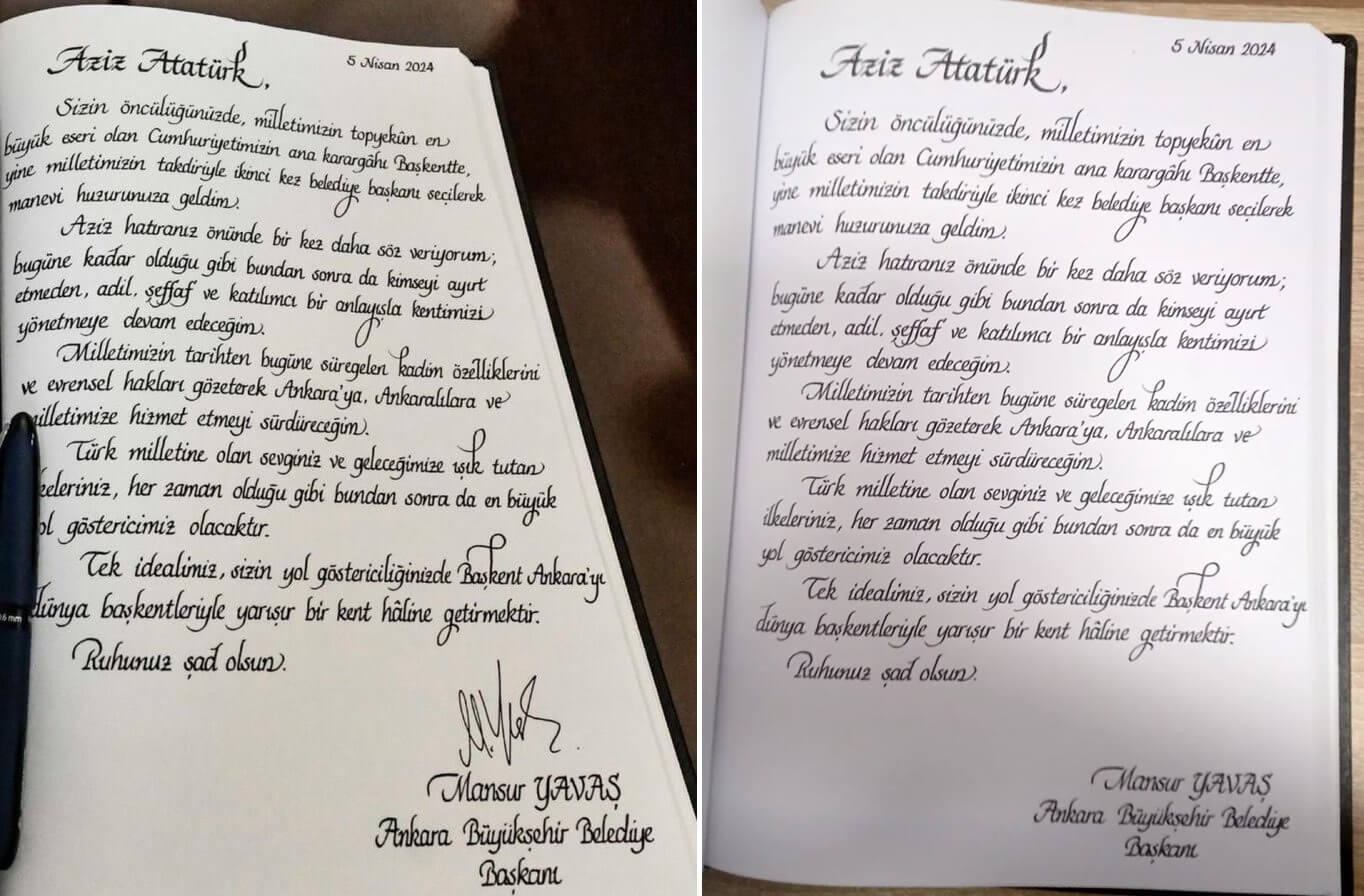 Aziz Atatürk,
5 Nisan 2024
Sizin öncülüğünüzde, milletimizin topyekûn en
büyük eseri olan Cumhuriyetimizin ana karargâhı Başkentte,
yine milletimizin takdiriyle ikinci kez belediye başkanı seçilerek
manevi huzurunuza geldim.
Aziz hatıranız önünde bir kez daha söz veriyorum;
bugüne kadar olduğu gibi bundan sonra da kimseyi ayırt
etmeden, adil, şeffaf ve katılımcı bir anlayışla kentimizi
yönetmeye devam edeceğim.
Milletimizin tarihten bugüne süregelen kadim özelliklerini
ve evrensel hakları gözeterek Ankara'ya, Ankaralılara ve
milletimize hizmet etmeyi sürdüreceğim.
Türk milletine olan sevginiz ve geleceğimize ışık tutan
keleriniz, her zaman olduğu gibi bundan sonra da en büyük
ol göstericimiz olacaktır.
Tek idealimiz, sizin yol göstericiliğinizde Başkent Ankara'yı
dünya başkentleriyle yarışır bir kent hâline getirmektir.
Ruhunuz şad olsun.
Mansur YAVAŞ
Ankara Büyükşehir Belediye
Başkanı
Aziz Atatürk,
5 Nisan 2024
Sizin öncülüğünüzde, milletimizin topyekûn en
büyük eseri olan Cumhuriyetimizin ana karargâhı Başkentte,
yine milletimizin takdiriyle ikinci kez belediye başkanı seçilerek
manevi huzurunuza geldim.
Aziz hatıranız önünde bir kez daha söz veriyorum;
bugüne kadar olduğu gibi bundan sonra da kimseyi ayırt
etmeden, adil, şeffaf ve katılımcı bir anlayışla kentimizi
yönetmeye devam edeceğim.
Milletimizin tarihten bugüne süregelen kadim özelliklerini
ve evrensel hakları gözeterek Ankara'ya, Ankaralılara ve
milletimize hizmet etmeyi sürdüreceğim.
Türk milletine olan sevginiz ve geleceğimize ışık tutan
ilkeleriniz, her zaman olduğu gibi bundan sonra da en büyük
yol göstericimiz olacaktır.
Tek idealimiz, sizin yol göstericiliğinizde Başkent Ankara'yı
dünya başkentleriyle yarışır bir kent hâline getirmektir.
Ruhunuz şad olsun.
Mansur YAVAŞ
Ankara Büyükşehir Belediye
Başkanı